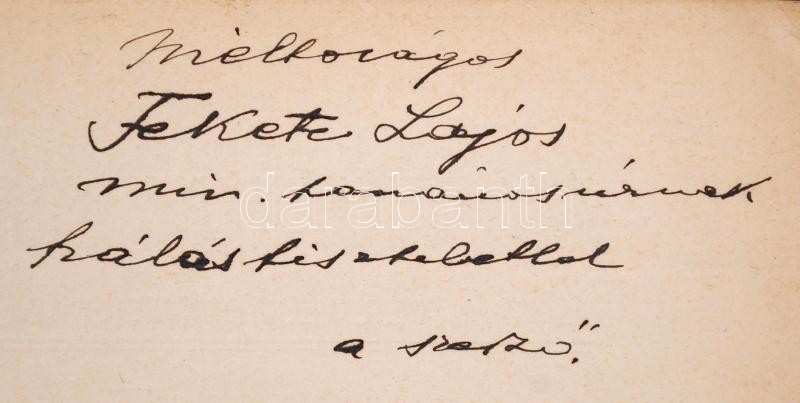 Méltóságos
Fekete Lajos
min. tanácsos úrnak
hálás tisztelettel
a szerző.
darabanth